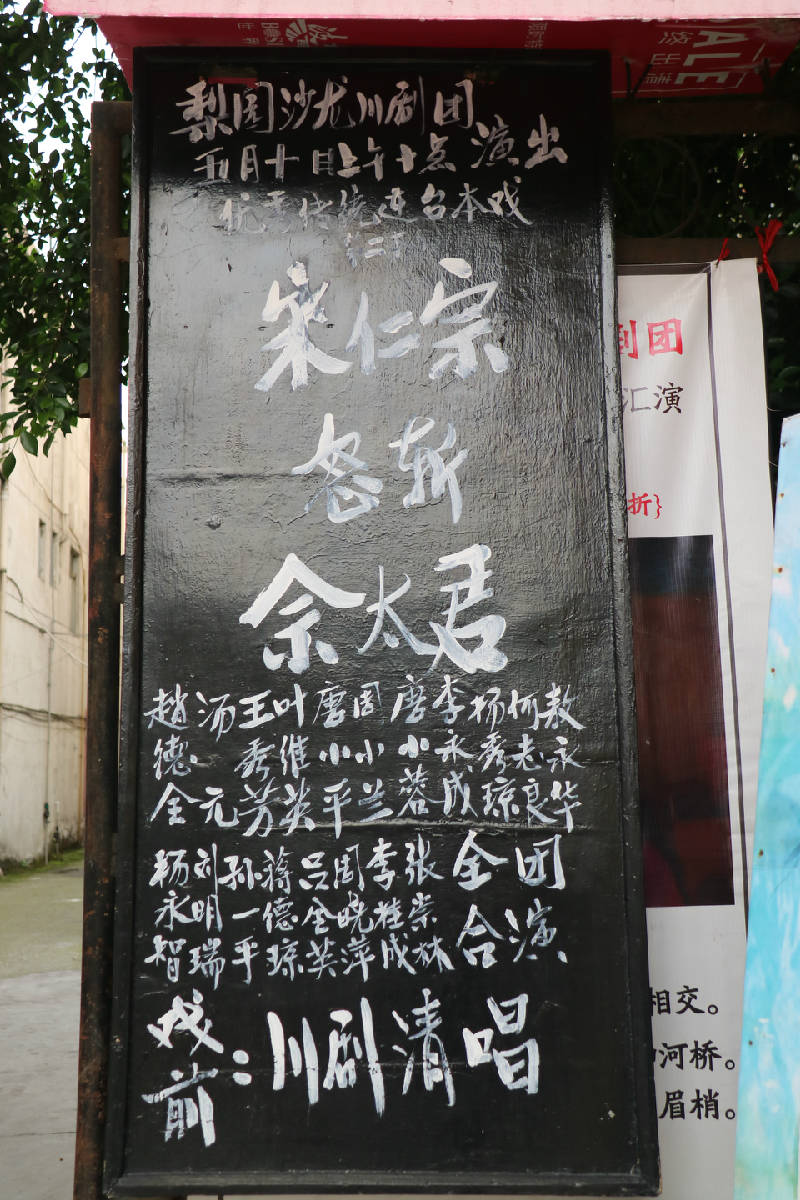 ALE
梨园沙龙川剧团
五月十日上午十点演出
优秀传统连台本戏
(二)
宋仁宗
怒斩
佘太君
赵德全 汤元 王秀芳 叶维英 唐小平 周小兰 唐小蓉 李永成 杨秀琼 何志良 敖永华
杨永智 刘明瑞 孙一平 蒋德琼 吕金英 周晓萍 李桂成 张崇林 全团合演
戏前:川剧清唱
剧团
汇演
折}
相交。
河桥。
眉梢。